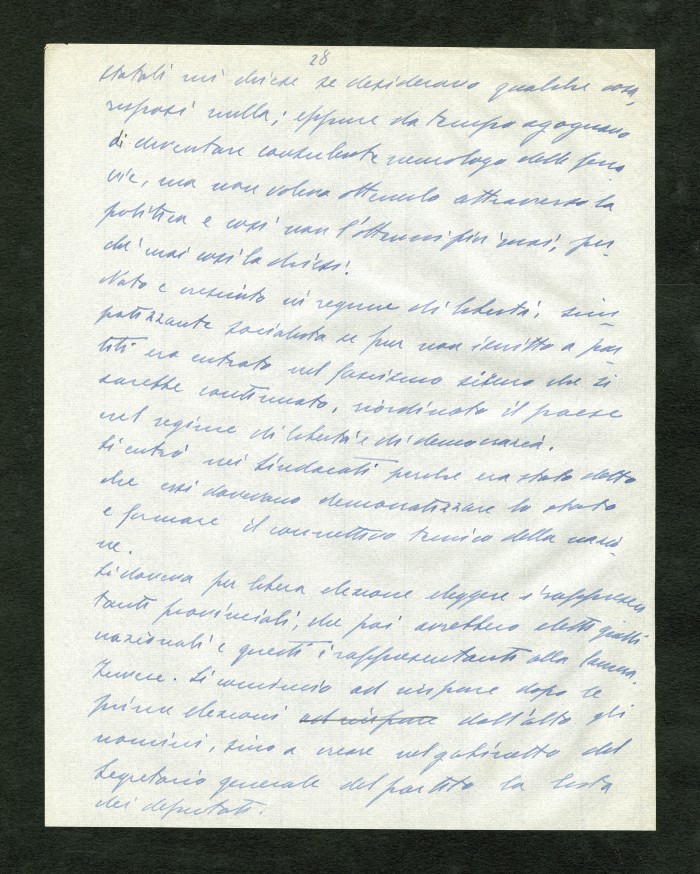 28
statali mi chiese se desideravo qualche cosa,
risposi nulla; eppure da tempo agognavo
di diventare consulente neurologo delle ferro
vie, ma non volevo ottenerlo attraverso la
politica e così non l'ottenni più mai, per-
ché mai così la chiesi.
Nato e cresciuto in regime di libertà, sim
patizzante socialista se pur non iscritto a par
titi ero entrato nel fascismo sicuro che si
sarebbe continuato, riordinato il paese
nel regime di libertà e di democrazia.
Si entrò nei Sindacati perché era stato detto
che essi dovevano democratizzare lo stato
e formare il correttivo tecnico della nazio-
ne.
Si doveva per libera elezione eleggere i rappresen
tanti provinciali, che poi avrebbero eletti quelli
nazionali e questi i rappresentanti alla Camera.
Invece. Si cominciò ad imporre dopo le
prime elezioni ad imporre dall'alto gli
uomini, sino a creare nel gabinetto del
Segretario generale del partito la lista
dei deputati.